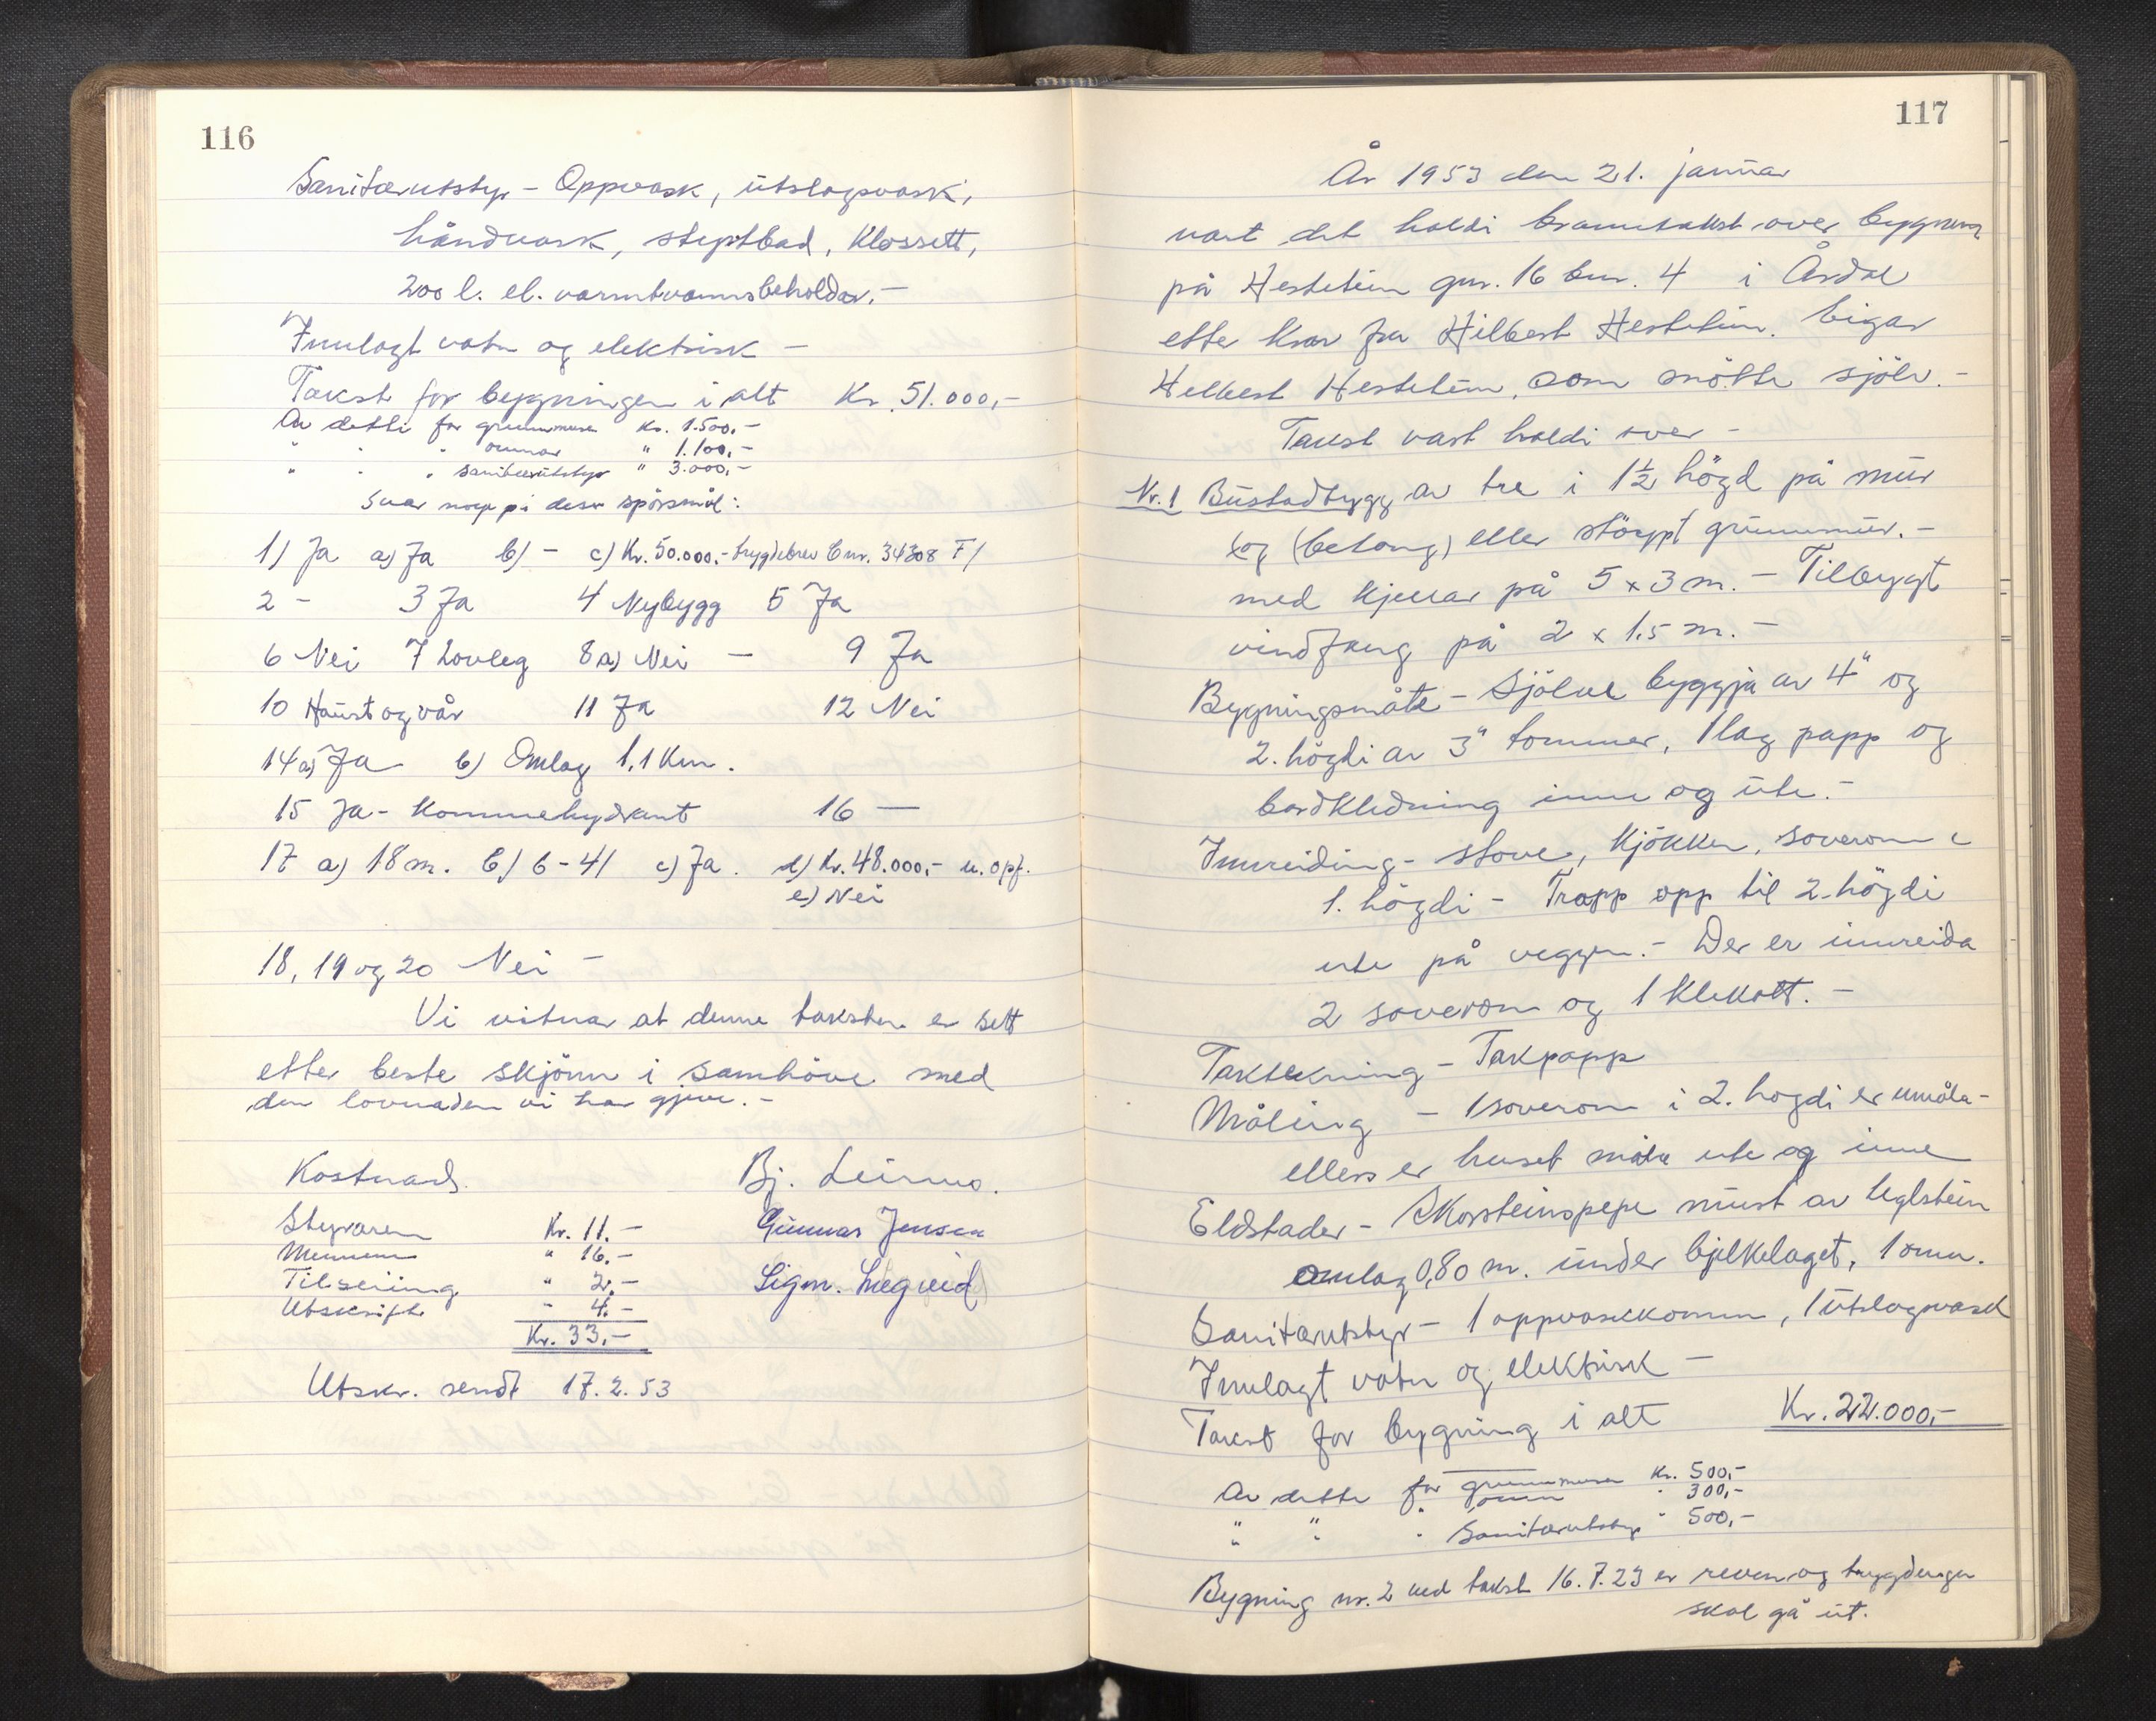 116
Sanitærutstyr - Oppvask, utslagsvask,
håndvask, styrtbad, Klossett,
200 l. el. varmtvannsbeholdar.-
Innlagt vatn og elektrisk -
Takst for bygningen i alt Kr. 51.000,-
Av dette for grunnmuren Kr. 1.500,-
" " " omnar " 1.100,-
" " " sanitærutstyr " 3.000,-
Svar på desse spörsmål:
1) Ja a) Ja b) - c) Kr. 50.000.- trygdebrev bnr. 34308 F/
2 - 3 Ja 4 Nybygg 5 Ja
6 Nei 7 Lovleg 8 a) Nei - 9 Ja
10 Haust og vår 11 Ja 12 Nei
14 a) Ja b) Omlag 1,1 Km.
15 Ja - Kommehydrant 16 -
17 a) 18 m. b) 6-41 c) Ja. d) Kr. 48.000,- u. opf.
e) Nei
18, 19 og 20 Nei -
Vi vitnar at denne taksten er sett
etter beste skjönn i samhöve med
den lovnaden vi har gjeve.-
Kostnad. Bj. Leirmo.
Styraren Kr. 11.- Gunnar Jensen
Mennene " 16.-
Tilseiing " 2.- Sigm.
Utskrift " 4.-
Kr. 33.-
Utskr. sendt 17.2.53
117
År 1953 den 21. januar
vart det haldi branntakst over bygning
på Hestetun gnr. 16 bnr. 4 i Årdal
etter krav fra Hilbert Hestetun. Eigar
Helbert Hestetun, som mötte sjölv.-
Takst vart haldi over -
Nr. 1 Bustadbygg av tre i 1½ högd på mur
og (betong) eller stöypt grunnmur.-
med kjellar på 5 x 3 m. - Tilbygt
vindfang på 2 x 1.5 m.-
Bygningsmåte - Sjölve byggja av 4" og
2. högdi av 3" tommer, 1 lag papp og
bordkledning inne og ute.-
Innreiding - stove, kjökken, soverom i
1. högdi - Trapp opp til 2. högdi
ute på veggen.- Der er innreida
2 soverom og 1 klekott.-
Taktekning - Takpapp
Måling - 1 soverom i 2. högdi er umåla -
ellers er huset måla ute og inne
Eldstader - Skorsteinspipe murt av teglstein
omlag 0,80 m. under bjelkelaget, 1 omn.
Sanitærutstyr - 1 oppvaskkomm, 1 utslagvask
Innlagt vatn og elektrisk -
Takst for bygning i alt Kr. 22.000,-
Av dette for grunnmuren Kr. 500,-
" omn " 300,-
" " " Sanitærutstyr " 500,-
Bygning nr. 2 ved takst 16.7.23 er reven og trygdingen
skal gå ut.